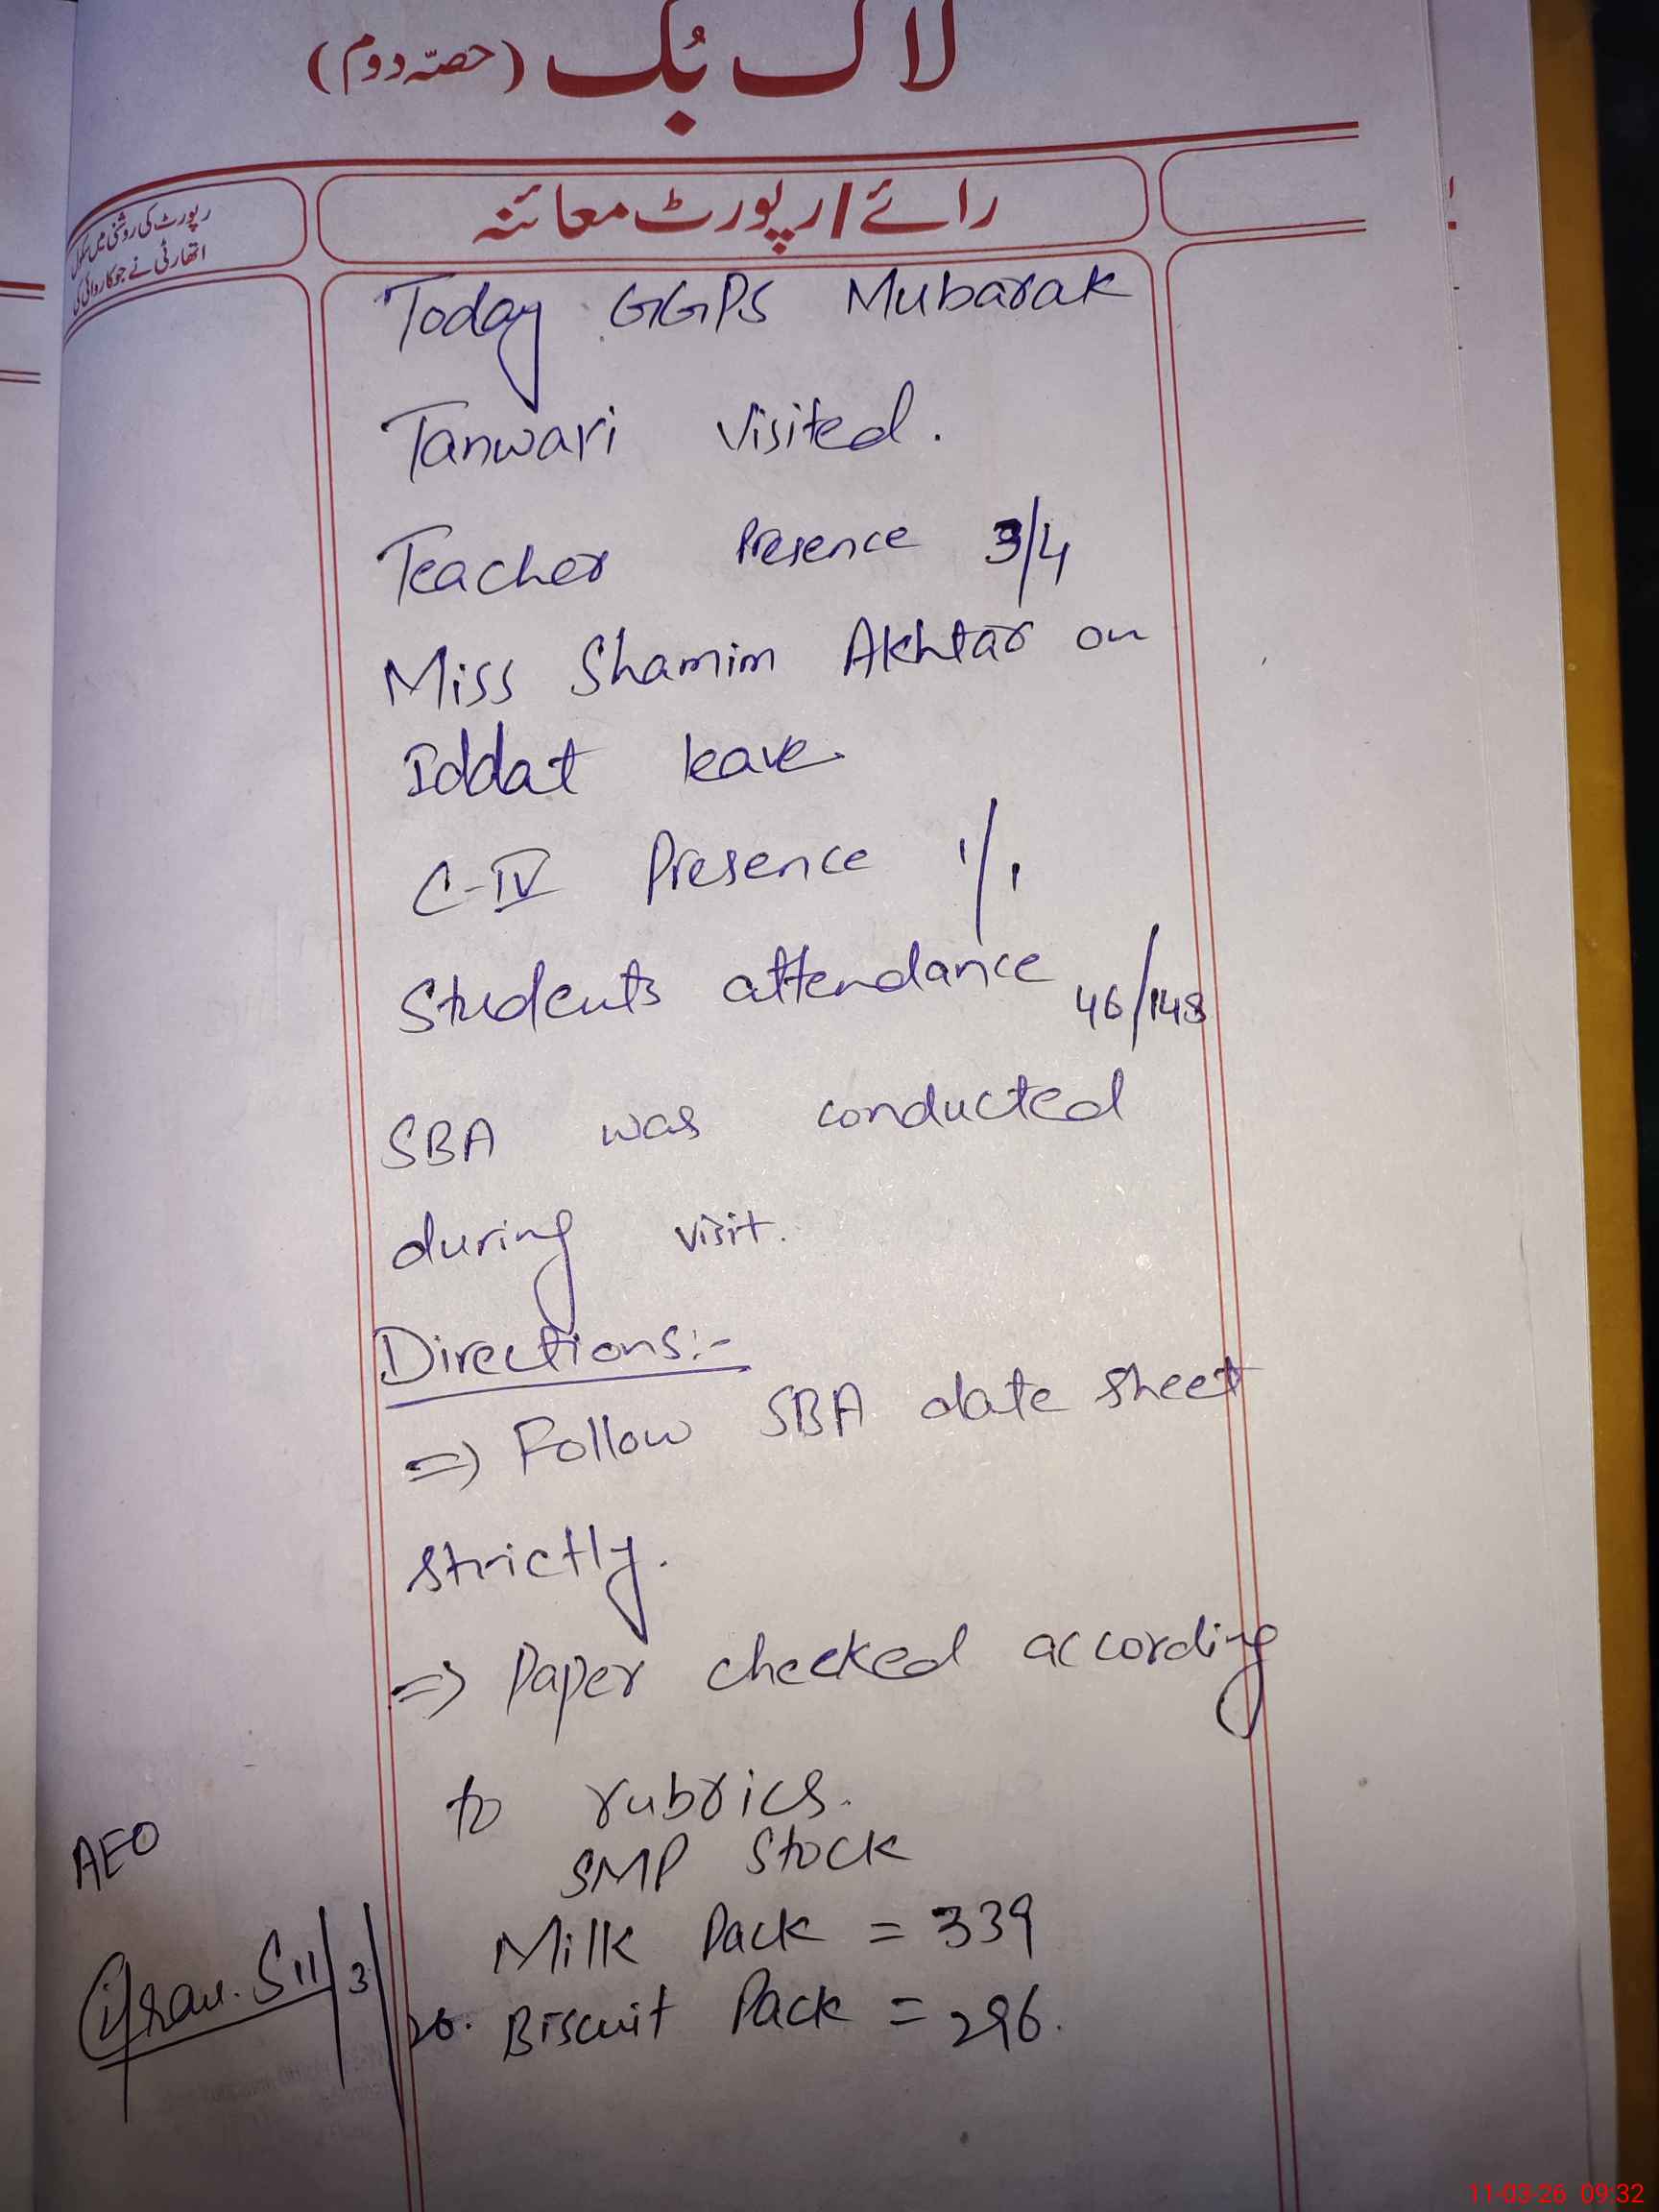 لاگ بُک (حصّہ دوم)
رائے / رپورٹ معائنہ
رپورٹ کی روشنی میں سکول
اتھارٹی نے جو کاروائی کی
Today GGPS Mubarak
Tanwari visited.
Teacher Presence 3/4
Miss Shamim Akhtar on
Iddat leave.
C-IV Presence 1/1
Students attendance 46/148
SBA was conducted
during visit.
Directions:-
=> Follow SBA date sheet
strictly.
=> Paper checked according
to rubrics.
SMP Stock
Milk Pack = 339
Biscuit Pack = 296.
AEO
11/3/26.
11-03-26 09:32